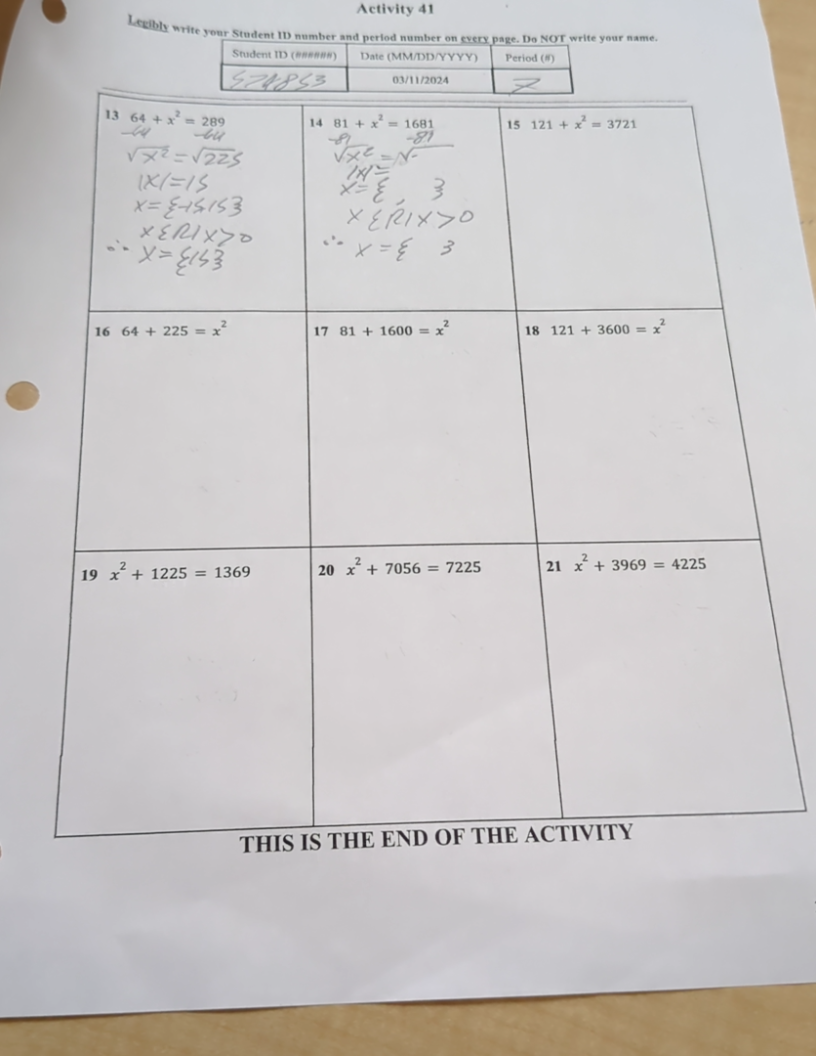 Activity 41
Legibly write your Student ID number and period number on every page. Do NOT write your name.
Student ID (######) Date (MM/DD/YYYY) Period (#)
03/11/2024 7
13 64 + x² = 289
-64 -64
√x² = √225
|x| = 15
x = {-15,15}
x ε R | x > 0
∴ x = {15}
14 81 + x² = 1681
-81 -81
√x² = √
|x| =
x = { , }
x ε R | x > 0
∴ x = { }
15 121 + x² = 3721
16 64 + 225 = x²
17 81 + 1600 = x²
18 121 + 3600 = x²
19 x² + 1225 = 1369
20 x² + 7056 = 7225
21 x² + 3969 = 4225
THIS IS THE END OF THE ACTIVITY